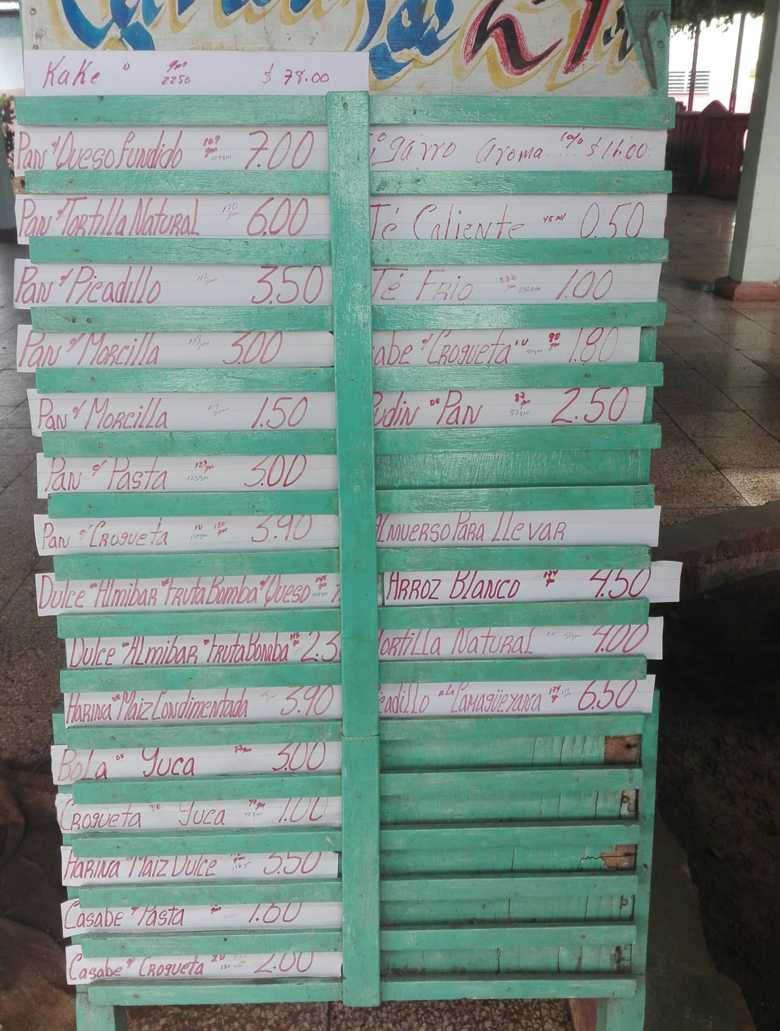 Kake 2250 gm $ 78.00
Pan c/ Queso Fundido 7.00
Pan c/ Tortilla Natural 6.00
Pan c/ Picadillo 3.50
Pan c/ Morcilla 3.00
Pan c/ Morcilla 1.50
Pan c/ Pasta 3.00
Pan c/ Croqueta 3.90
Dulce en Almibar de Fruta Bomba c/ Queso
Dulce en Almibar de Fruta Bomba 2.3
Harina de Maiz Condimentada 3.90
Bola de Yuca 3.00
Croqueta de Yuca 1.00
Harina Maiz Dulce 3.50
Casabe c/ Pasta 1.60
Casabe c/ Croqueta 2.00
igarro aroma .... $ 16.00
Té Caliente 0.50
Té Frio 1.00
abe c/ Croqueta 1.80
udin de Pan 2.50
Almuerso Para Llevar
Arroz Blanco 4.50
Tortilla Natural 4.00
cadillo a la Camagüeyana 6.50